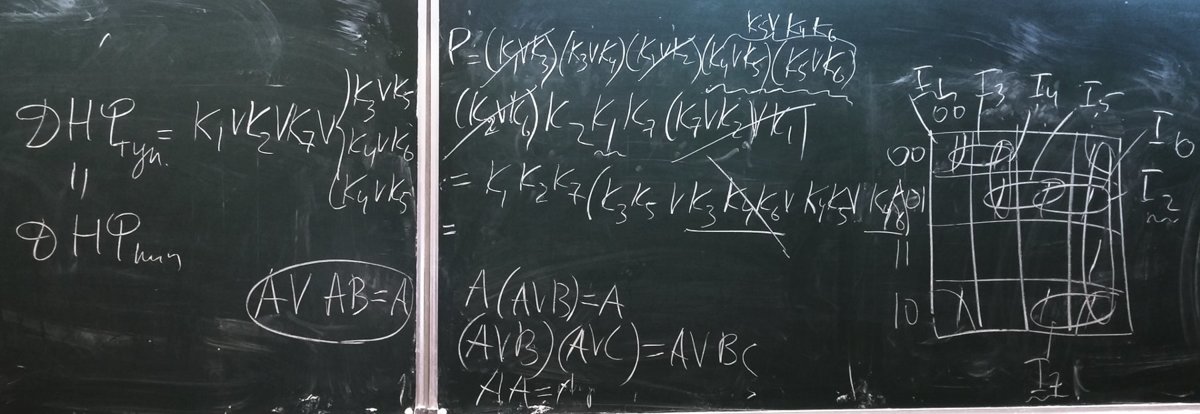 ДНФтуп. = K1 ∨ K2 ∨ K7 ∨ { K3 ∨ K5
K4 ∨ K6
K4 ∨ K5
"
ДНФmin
A ∨ AB = A
K5 ∨ K4 K6
P = (K1 ∨ K3)(K3 ∨ K4)(K1 ∨ K2)(K4 ∨ K5)(K5 ∨ K6)
(K2 ∨ K6) K2 K1 K7 (K7 ∨ K2 ∨ K1)
= K1 K2 K7 (K3 K5 ∨ K3 K4 K6 ∨ K4 K5 ∨ K4 K6)
=
A(A ∨ B) = A
(A ∨ B)(A ∨ C) = A ∨ BC
AA =
I1 I3 I4 I5
00
I6
00
I2
01
11
10
I7